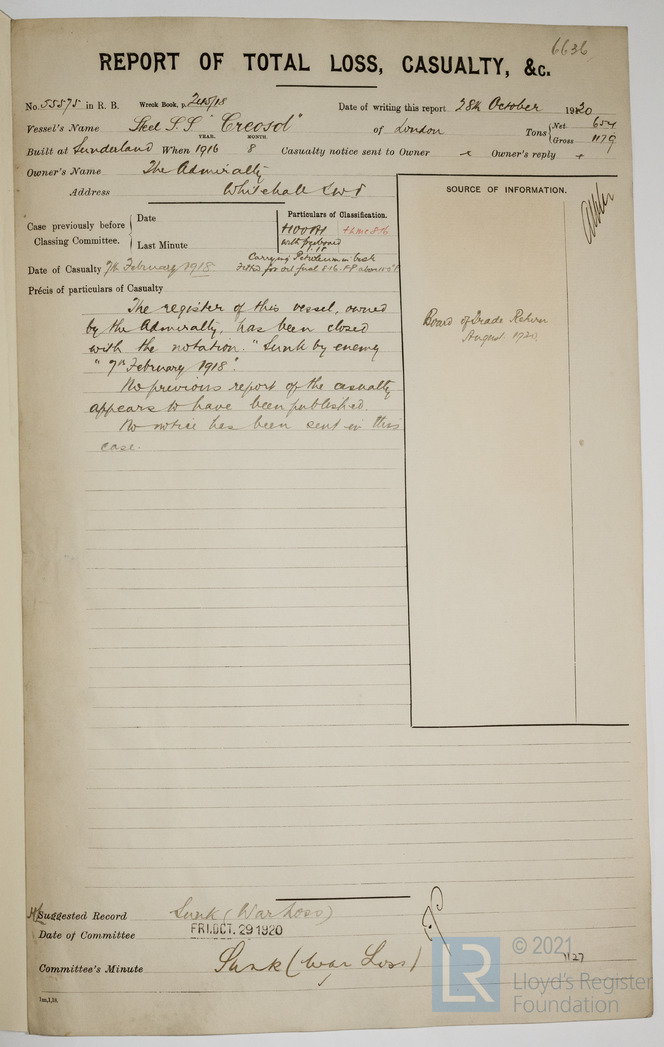 6636
REPORT OF TOTAL LOSS, CASUALTY, &c.
No. 55575 in R. B. Wreck Book, p. Date of writing this report 28th October 1920
Vessel's Name Steel S.S. "Creosol" of London Tons { Net 654
YEAR. MONTH. Gross 1179
Built at Sunderland When 1916 8 Casualty notice sent to Owner Owner's reply
Owner's Name The Admiralty
Address Whitehall SW1
SOURCE OF INFORMATION.
Case previously before Classing Committee. { Date
Last Minute
Particulars of Classification.
+100A1 +LMC 8.16
Carrying Petroleum in bulk
Date of Casualty 7th February 1918
Fitted for oil fuel 8.16. FP above 150°F
Précis of particulars of Casualty
The register of this vessel, owned
by the Admiralty, has been closed
with the notation. "Sunk by enemy
"7th February 1918".
No previous report of the casualty
appears to have been published.
No notice has been sent in this
case.
Board of Trade Return
August 1920
Suggested Record Sunk (War Loss)
Date of Committee FRI. OCT. 29 1920
Committee's Minute Sunk (War Loss)
LR © 2021
Lloyd's Register
Foundation